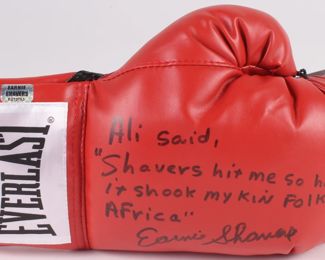 EARNIE
SHAVERS
EVERLAST
Ali said,
"Shavers hit me so ha
it shook my kin folk
Africa"
Earnie Shavers